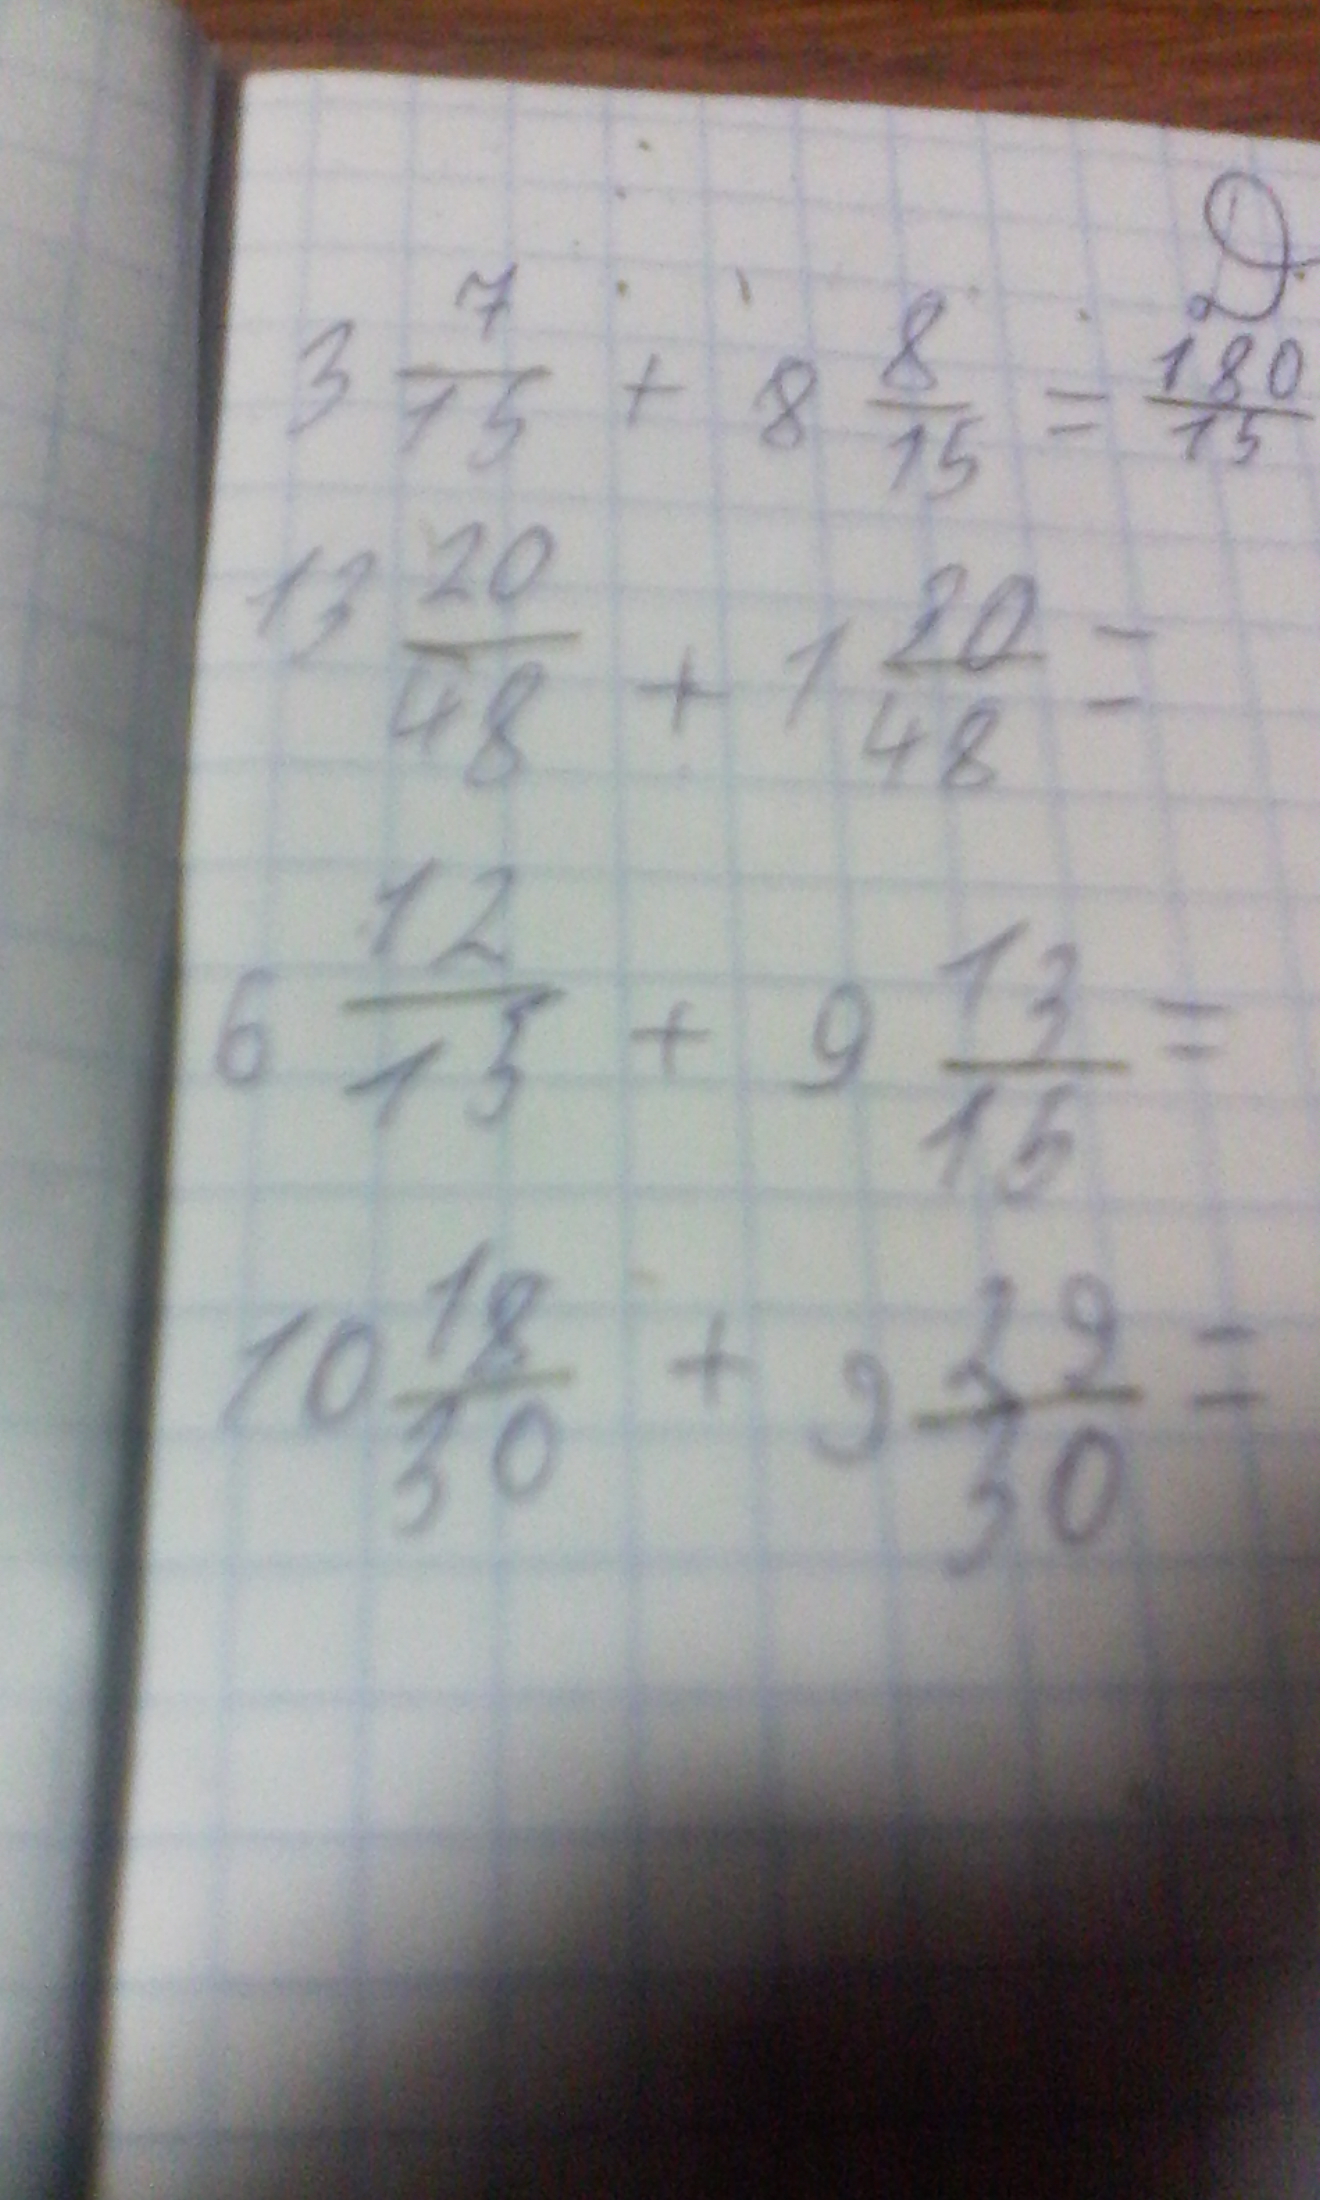 Д.
3 7/15 + 8 8/15 = 180/15
13 20/48 + 1 20/48 =
6 12/15 + 9 13/15 =
10 18/30 + 9 29/30 =